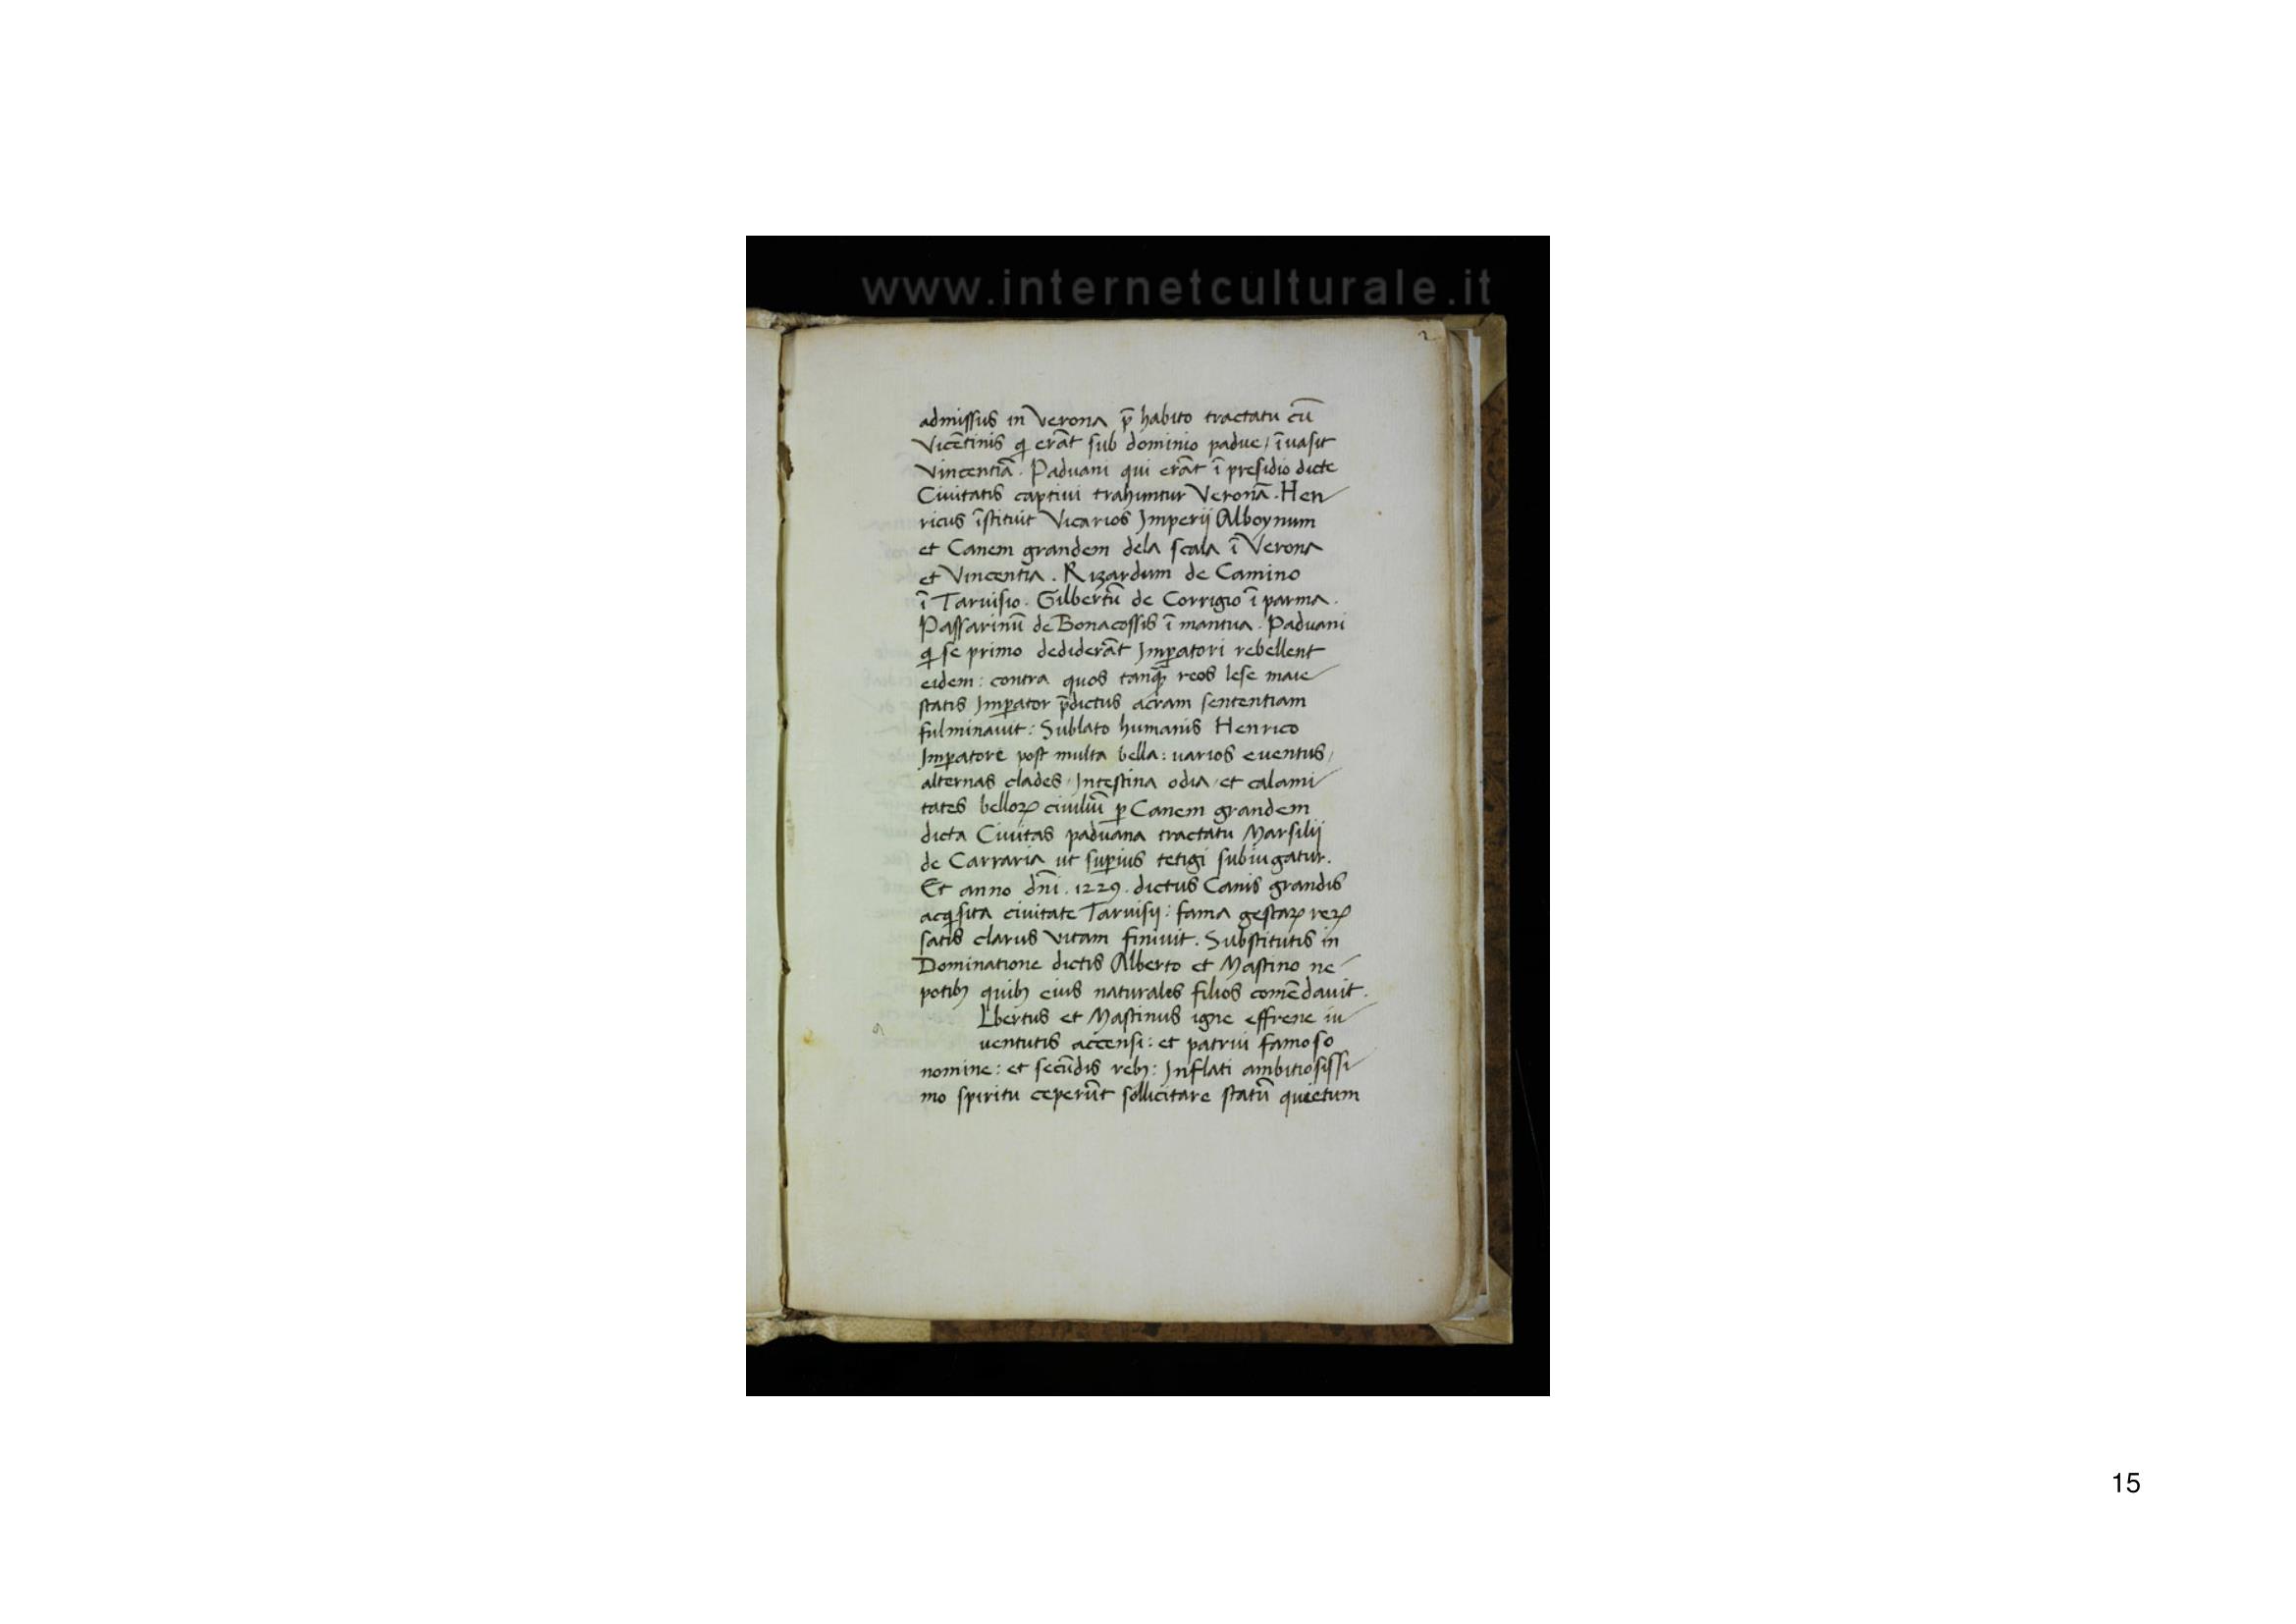 www.internetculturale.it
2
admissus in Verona p̄ habito tractatu cū
Vicētinis q erāt sub dominio padue / īuasit
Vincentiā. Paduani qui erāt ī presidio dicte
Ciuitatis captiui trahuntur Veronā. Hen
ricus īstituit Vicarios Imperij Alboynum
et Canem grandem dela scala ī Verona
et Vincentia. Rizardum de Camino
ī Taruisio. Gilbertū de Corrigio ī parma.
Passarinū de Bonacossis ī mantua. Paduani
q se primo dediderāt Imꝑatori rebellent
eidem: contra quos tanq̄ reos lese maie
statis Imꝑator p̄dictus acram sententiam
fulminauit: Sublato humanis Henrico
Imꝑatore post multa bella: uarios euentus /
alternas clades / Intestina odia / et calami
tates belloꝝ ciuiliū ꝑ Canem grandem
dicta Ciuitas paduana tractatu Marsilij
de Carraria ut suꝑius tetigi subiugatur.
Et anno dn̄i. 1229. dictus Canis grandis
acqsita ciuitate Taruisij: fama gestaꝝ reꝝ
satis clarus vitam finiuit. Substitutis in
Dominatione dictis Alberto et Mastino ne
potibꝫ quibꝫ eius naturales filios comēdauit.
a
Lbertus et Mastinus igne effrene iu
uentutis accensi: et patrui famoso
nomine: et secūdis rebꝫ: Inflati ambitiosissi
mo spiritu ceperūt sollicitare statū quietum
15